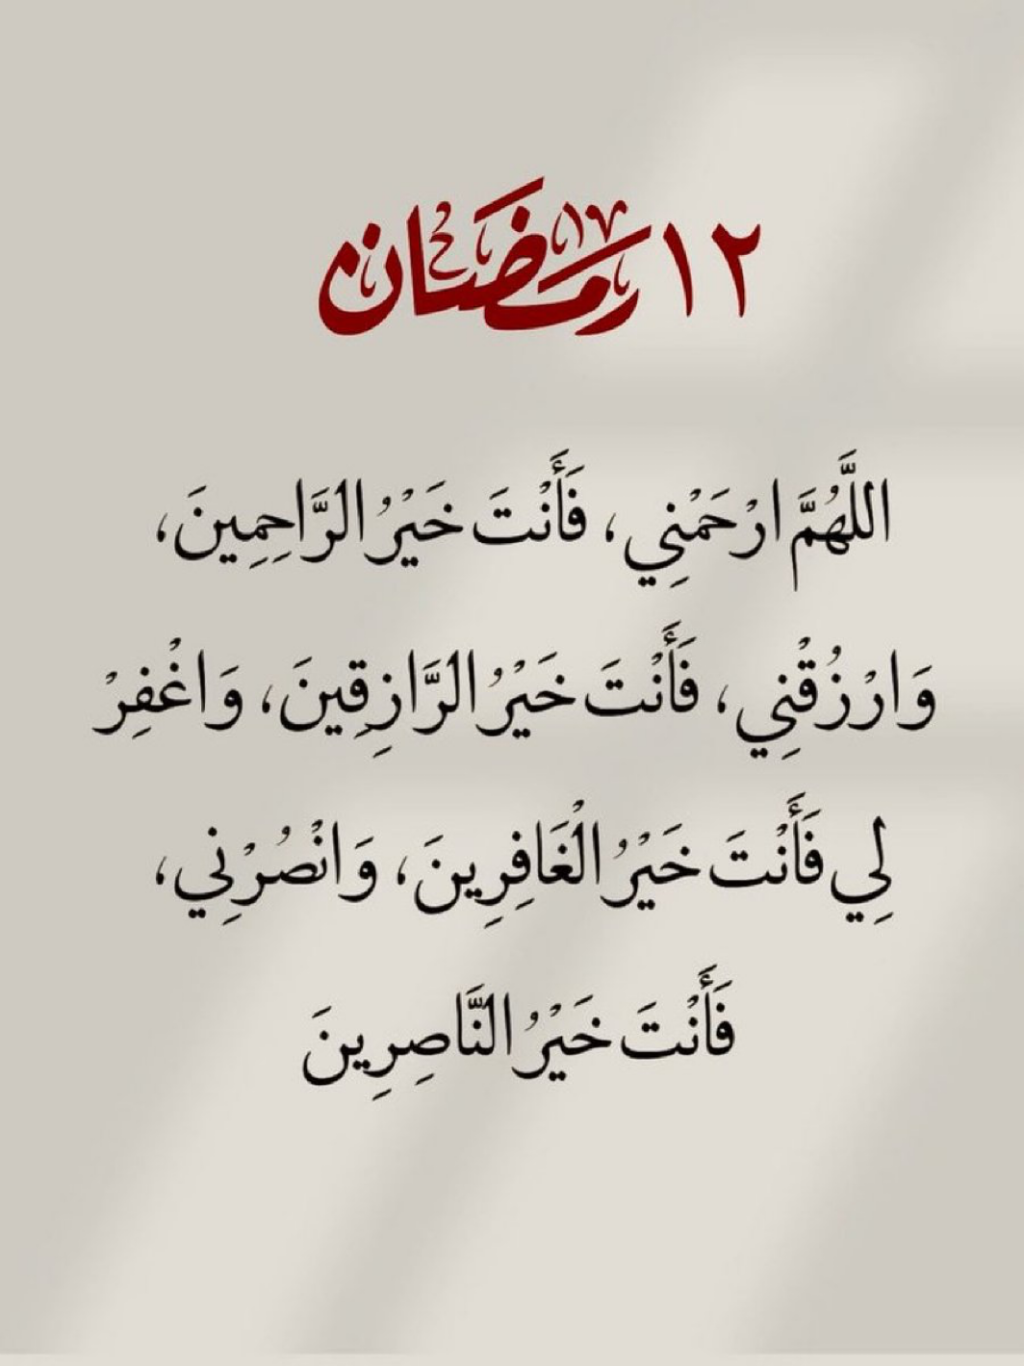 ١٢ رمضان
اللَّهُمَّ ارْحَمْنِي، فَأَنْتَ خَيْرُ الرَّاحِمِينَ،
وَارْزُقْنِي، فَأَنْتَ خَيْرُ الرَّازِقِينَ، وَاغْفِرْ
لِي فَأَنْتَ خَيْرُ الْغَافِرِينَ، وَانْصُرْنِي،
فَأَنْتَ خَيْرُ النَّاصِرِينَ